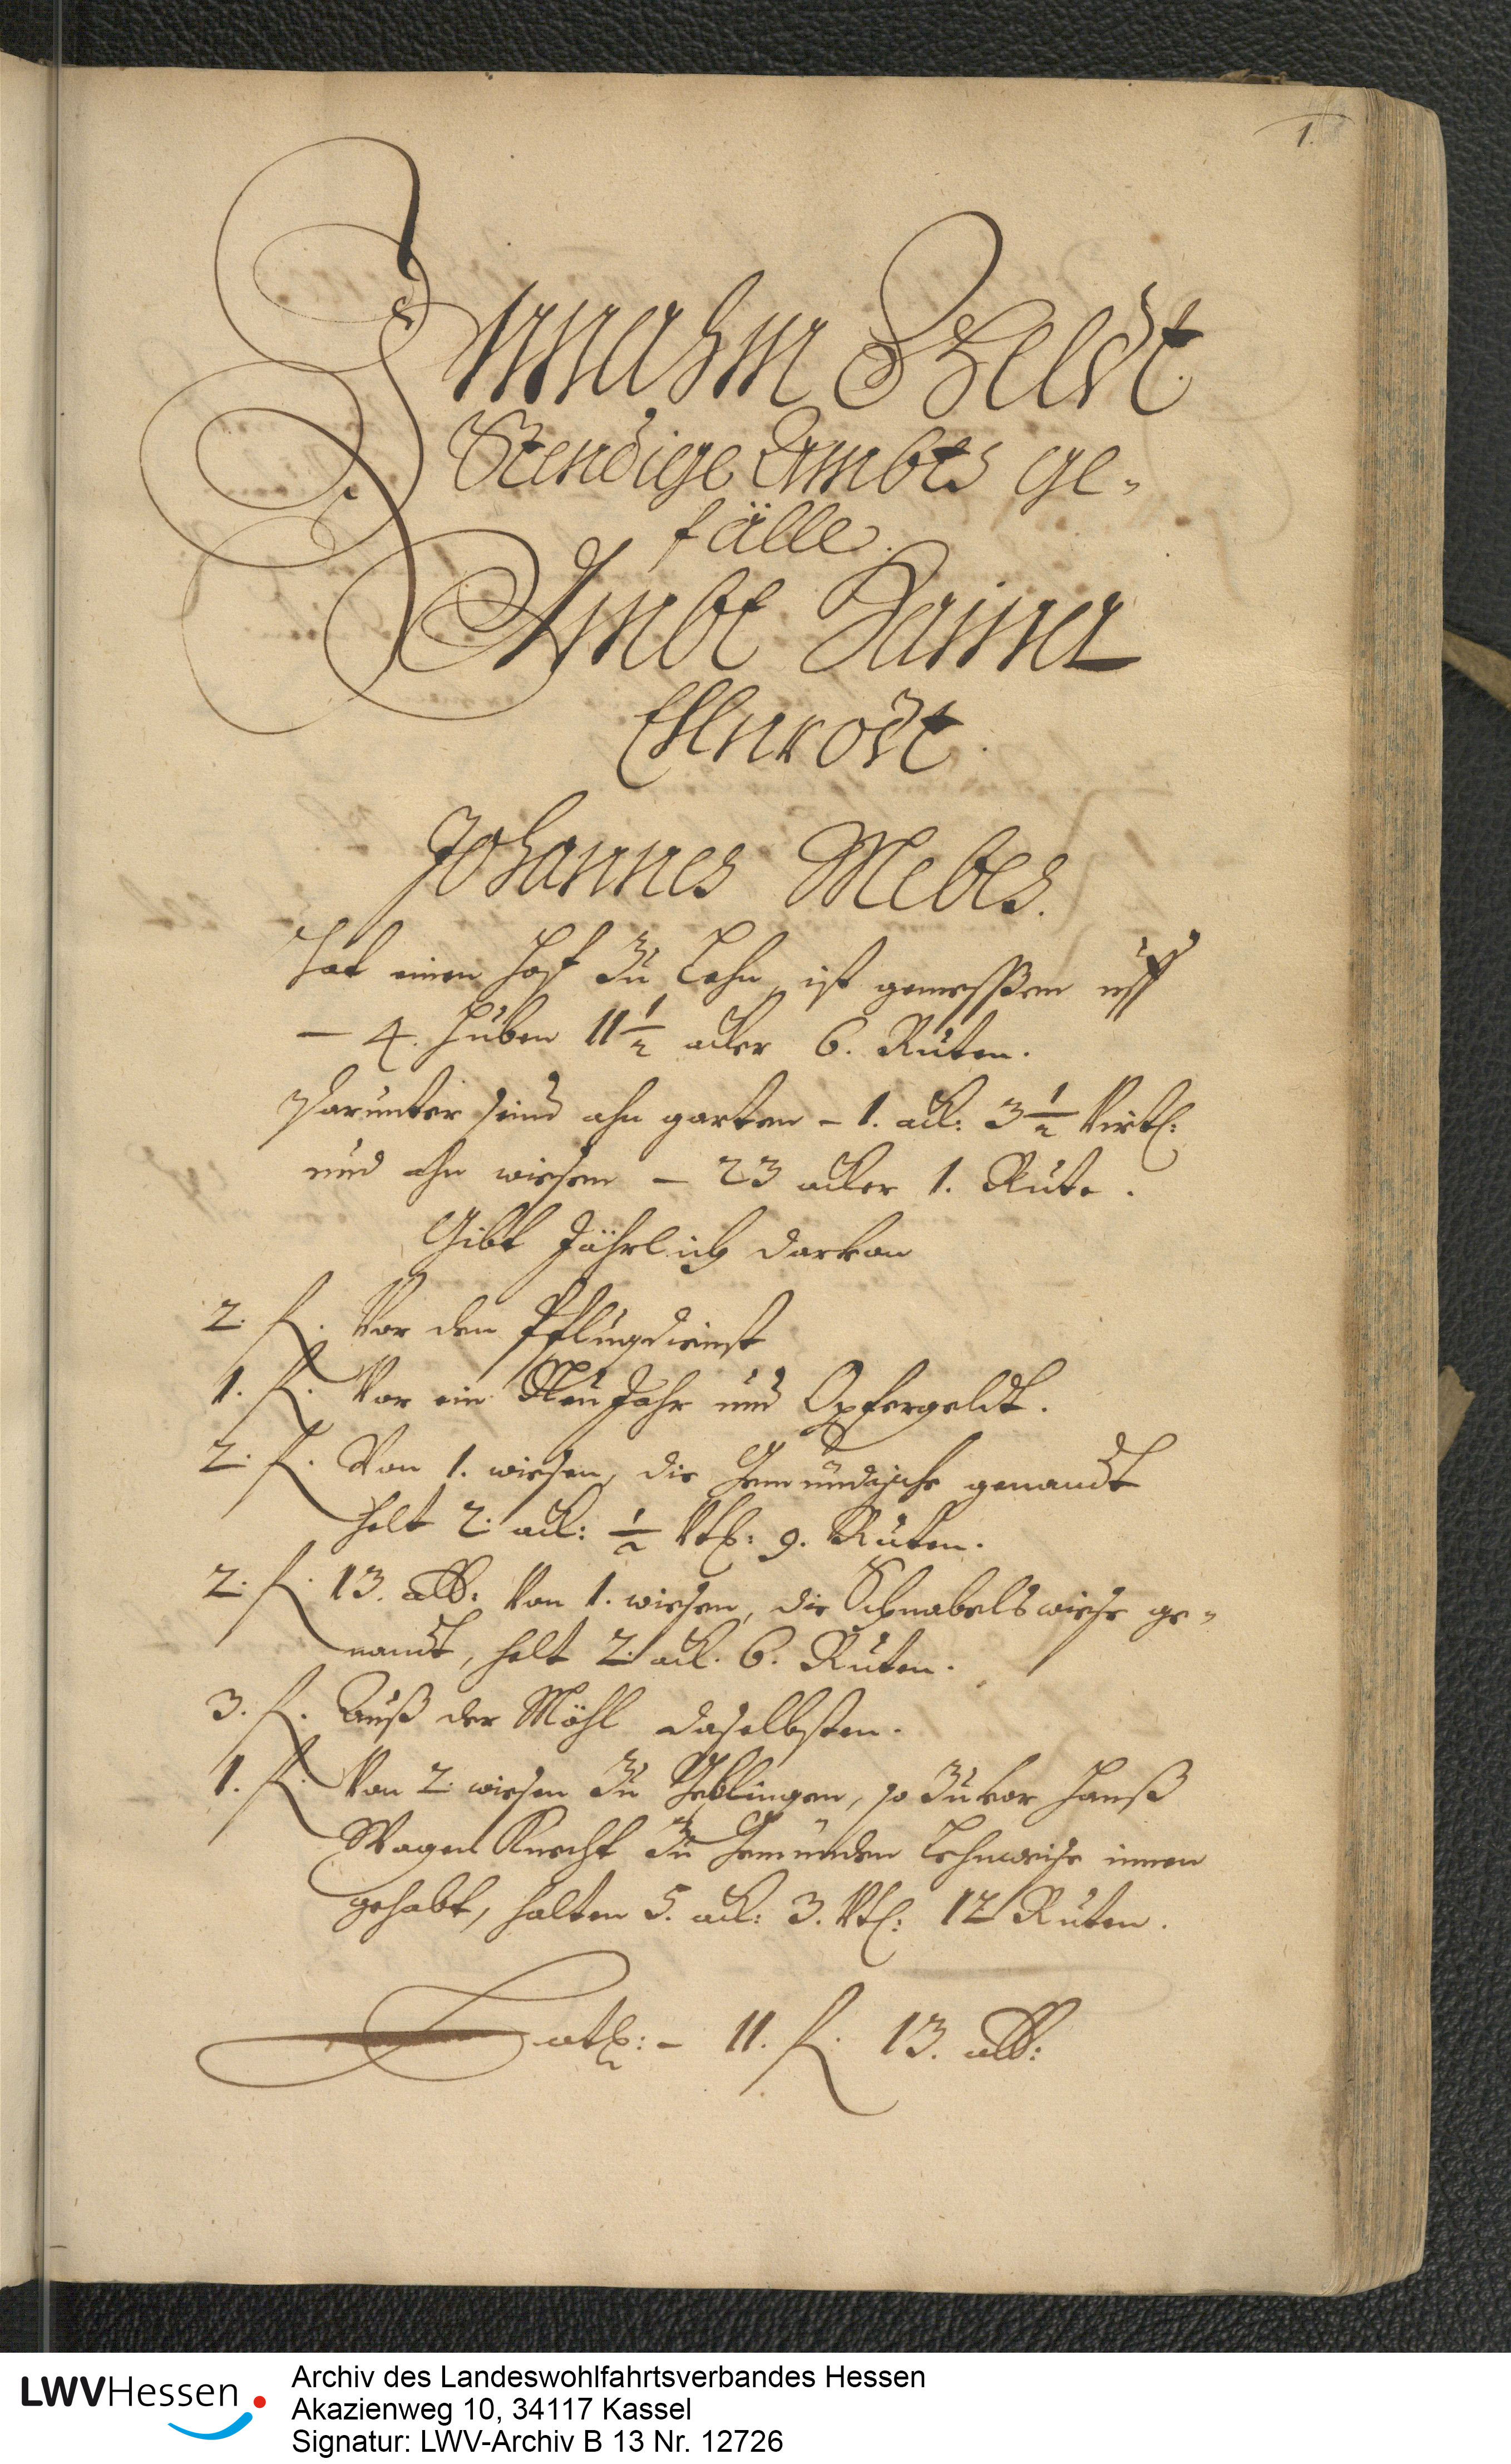 1.
Innahm Geldt
Stendige Ambts ge„
fälle.
Ambt Hainer
Ellnrodt.
Johannes Mebes.
Hat einen Hoff zu Lehn, ist gemeßen uff
— 4. Huben 11½ acker 6. Ruten.
Darunter sind ahn garten – 1. ack: 3½ Virtl:
und ahn wiesen – 23 acker 1. Rute.
Gibt Jährlich darvon
2. fl. Vor den Pflugdienst
1. fl. Vor ein Neu Jahr und Opfergeldt.
2. fl. Von 1. wiesen, die genandt
helt 2. ack: ½ Vtl: 9. Ruten.
2. fl. 13. alb: Von 1. wiesen, die Schnabelswiese ge„
nandt, helt 2. ack. 6. Ruten.
3. fl. Auß der Möhl daselbsten.
1. fl. Von 2. wiesen zu, so zuvor Hanß
Wagen Knecht zu Gemünden Lehnweise innen
gehabt, halten 5. ack: 3. Vtl: 12 Ruten.
Latg: – 11. fl. 13. alb:
LWVHessen
Archiv des Landeswohlfahrtsverbandes Hessen
Akazienweg 10, 34117 Kassel
Signatur: LWV-Archiv B 13 Nr. 12726